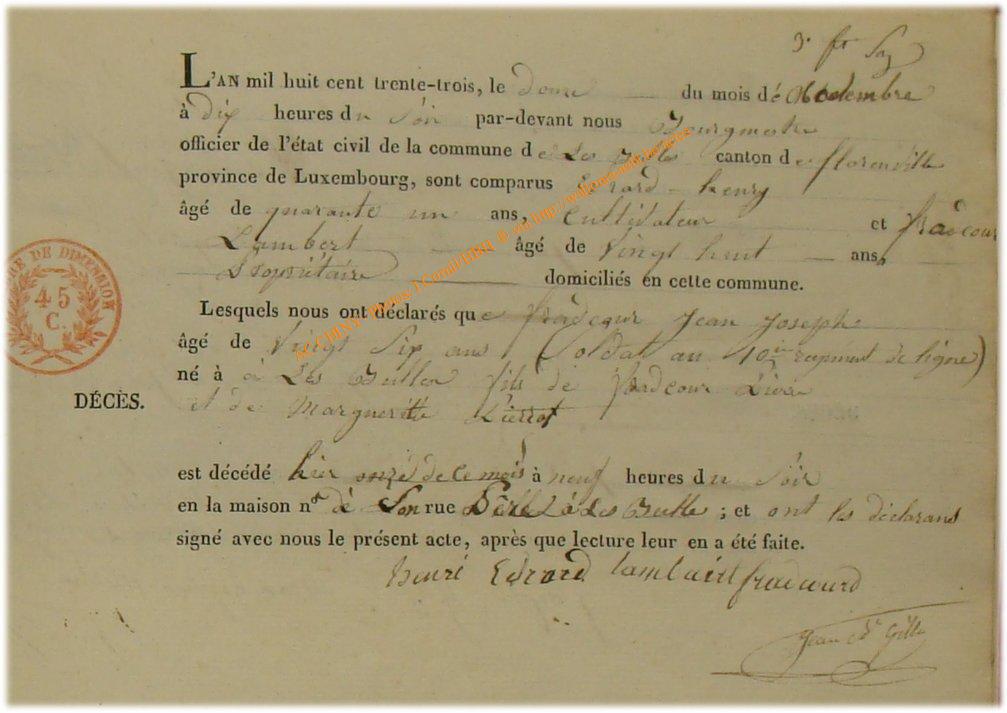 L'AN mil huit cent trente-trois, le douze du mois de
à dix heures du Soir par-devant nous Bourgmestre
officier de l'état civil de la commune de Les Bulles canton de florenville
province de Luxembourg, sont comparus Evrard henry
âgé de quarante un ans, Cultivateur et fradcour
Lambert âgé de Vingt huit ans,
Propriétaire domiciliés en cette commune.
Lesquels nous ont déclarés que fradcour Jean Joseph
âgé de Vingt Six ans (Soldat au 10 regiment de ligne)
né à à Les Bulles fils de fradcour
DÉCÈS.
et de Margueritte Pierrot
est décédé hier onze de ce mois à neuf heures du Soir
en la maison n° de Son rue à Les Bulle ; et ont les déclarans
signé avec nous le présent acte, après que lecture leur en a été faite.
henri Evrard lambert fradcourd
Jean Gille
DE DIMENSION
45
C.